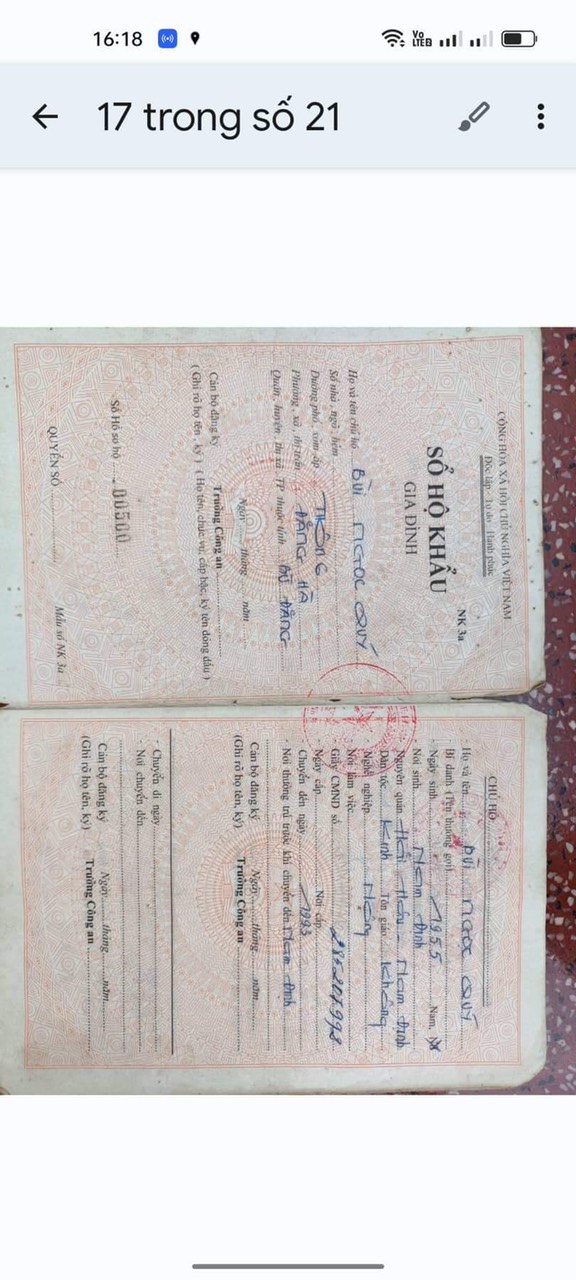 16:18
Vo LTE2
17 trong số 21
CỘNG HÒA XÃ HỘI CHỦ NGHĨA VIỆT NAM
Độc lập - Tự do - Hạnh phúc
NK 3a
SỔ HỘ KHẨU
GIA ĐÌNH
Họ và tên chủ hộ BÙI NGỌC QUÝ
Số nhà, ngõ, hẻm
Đường phố, xóm ấp THÔN 6
Phường, xã, thị trấn ĐĂNG HÀ
Quận, huyện, thị xã, TP thuộc tỉnh BÙ ĐĂNG
Ngày tháng năm
Cán bộ đăng ký Trưởng Công an
(Ghi rõ họ tên, ký) (Họ tên, chức vụ, cấp bậc, ký tên đóng dấu)
Số Hồ sơ hộ 00500
QUYỂN SỐ Mẫu số NK 3a
CHỦ HỘ
- Họ và tên BÙI NGỌC QUÝ
Bí danh (Tên thường gọi)
- Ngày sinh /1955 Nam,
Nơi sinh Nam Định
Nguyên quán Hải Hậu - Nam Định
Dân tộc Kinh Tôn giáo Không
Nghề nghiệp Nông
Nơi làm việc
Giấy CMND số
Ngày cấp Nơi cấp
Chuyển đến ngày /1993
- Nơi thường trú trước khi chuyển đến Nam Định
Ngày tháng năm
Cán bộ đăng ký Trưởng Công an
(Ghi rõ họ tên, ký)
- Chuyển đi ngày
- Nơi chuyển đến
Ngày tháng năm
Cán bộ đăng ký Trưởng Công an
(Ghi rõ họ tên, ký)